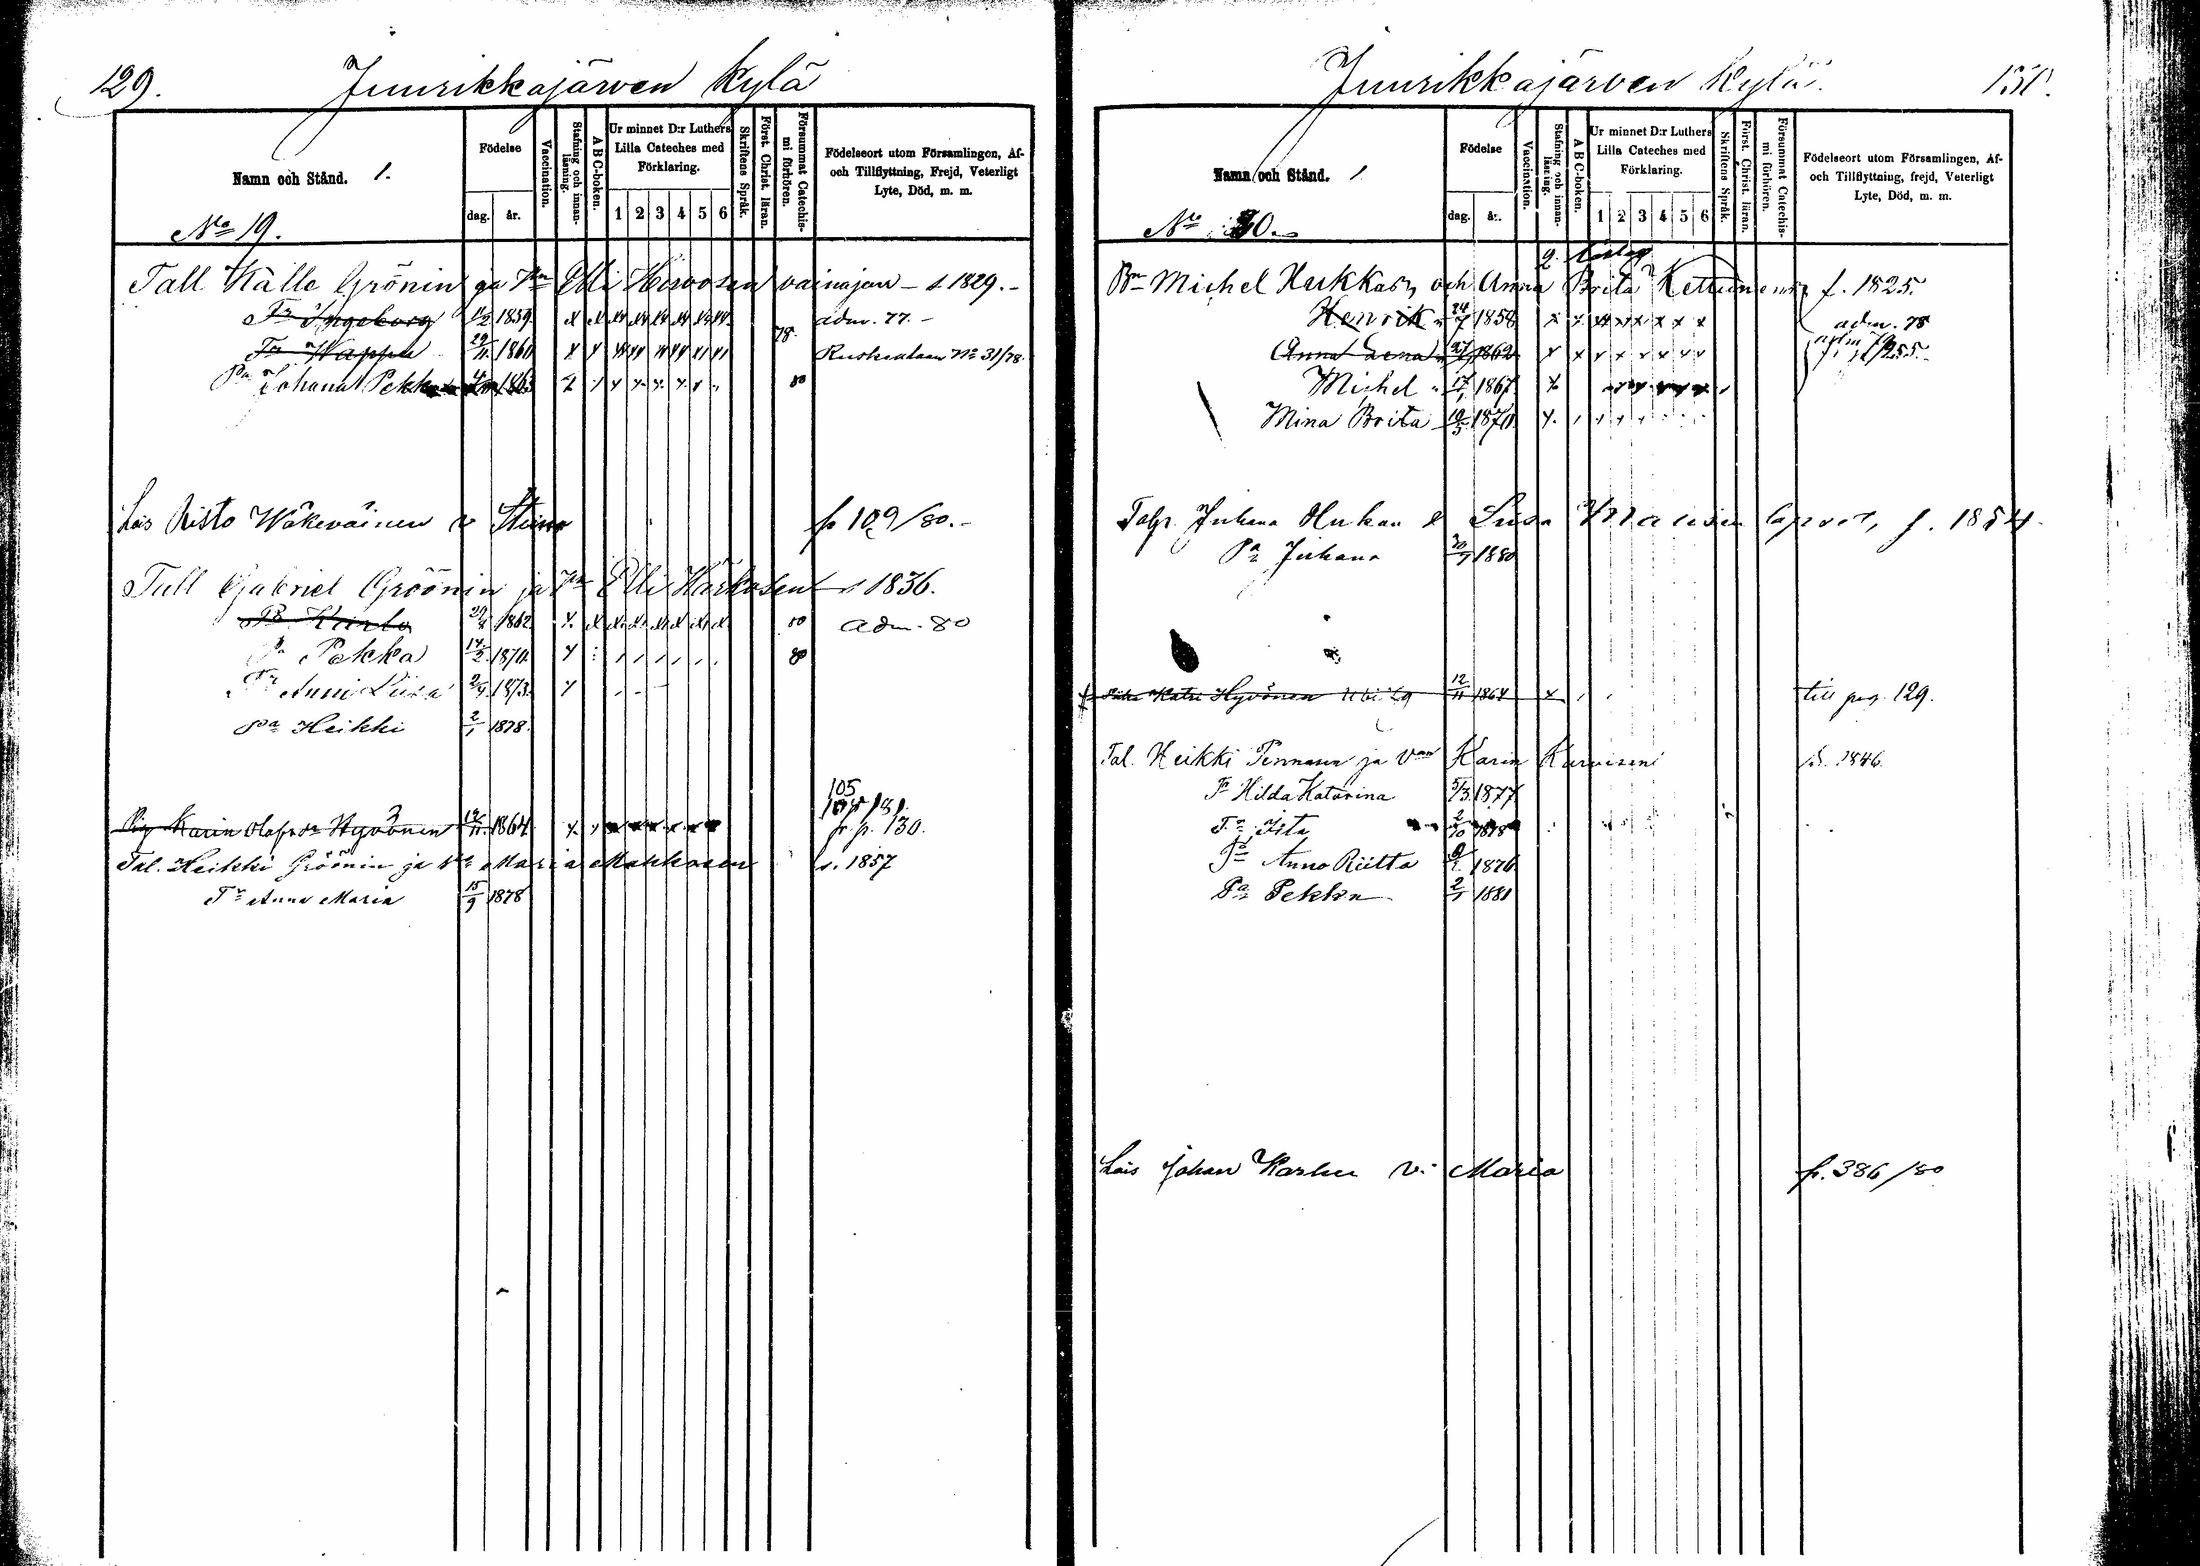 129. Juurikkajärven Kylä
Namn och Stånd. 1.
No 19.
Födelse
dag. år.
Vaccination.
Stafning och innanläsning.
A B C-boken.
Ur minnet D:r Luthers Lilla Cateches med Förklaring.
1 2 3 4 5 6
Skriftens Språk.
Först. Christ. läran.
Försummat Catechismi förhören.
Födelseort utom Församlingen, Af- och Tillflyttning, Frejd, Veterligt Lyte, Död, m. m.
Tall Kalle Grönin ja Vm Elli Hirvosen vainajan - s 1829.-
Tr Ingeborg 1859. adm. 77.-
Tr Wappu 29/11 1860 78. Ruskealaan No 31/78.
Pa Johanat Pekka 1863 80
Lois Risto Wäkeväinen v Stiina fr 109/80.-
Tall Gabriel Gröönin ja Vm Elli Kärkösen s 1836.
1862. 80 adm. 80
Pa Pekka 14/2 1870. 80
Tr Anni Liisa 2/4 1873.
Pa Heikki 2/1 1878.
105
Pig Karin Olafsdr Hyvönen 12/11 1864. fr. p. 130.
Tal. Heikki Gröönin ja Vm Maria Makkosen s. 1857
Tr Anna Maria 15/9 1878
Juurikkajärven Kylä. 130.
Namn och Stånd. 1
No 30.
Födelse
dag. år.
Vaccination.
Stafning och innanläsing.
A B C-boken.
Ur minnet D:r Luthers Lilla Cateches med Förklaring.
1 2 3 4 5 6
Skriftens Språk.
Först. Christ. läran.
Försummat Catechismi förhören.
Födelseort utom Församlingen, Af- och Tillflyttning, frejd, Veterligt Lyte, Död, m. m.
Bn Michel Hukkas, och Anna Brita Kettunens f. 1825.
Henrik 24/7 1858 adm. 78
Anna Lena 27/7 1862
Michel 17/1 1867.
Mina Brita 19/3 1870.
Talp. Juhana Hukan & Liisa lapset, f. 1854.
Pa Juhana 1880
Katri Hyvönen 12/11 1864 till pag. 129.
Tal. Heikki Pennasen ja Vm Karin Karvisen s. 1846.
Tr Hilda Katarina 5/3 1877
Tr Iita 2/10 1878
Tr Anna Riitta 1876.
Pa Pekka 2/1 1881
Lois Johan Karhu v: Maria fr. 386/80